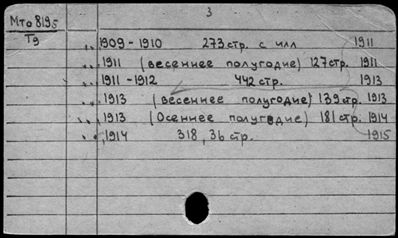 3
Мто 8195
Т9
„ 1909 - 1910 273 стр. с илл 1911
„ 1911 (весеннее полугодие) 127 стр. 1911
„ 1911 - 1912 442 стр. 1913
„ 1913 (весеннее полугодие) 139 стр. 1913
„ 1913 (Осеннее полугодие) 181 стр. 1914
„ 1914 318, 36 стр. 1915